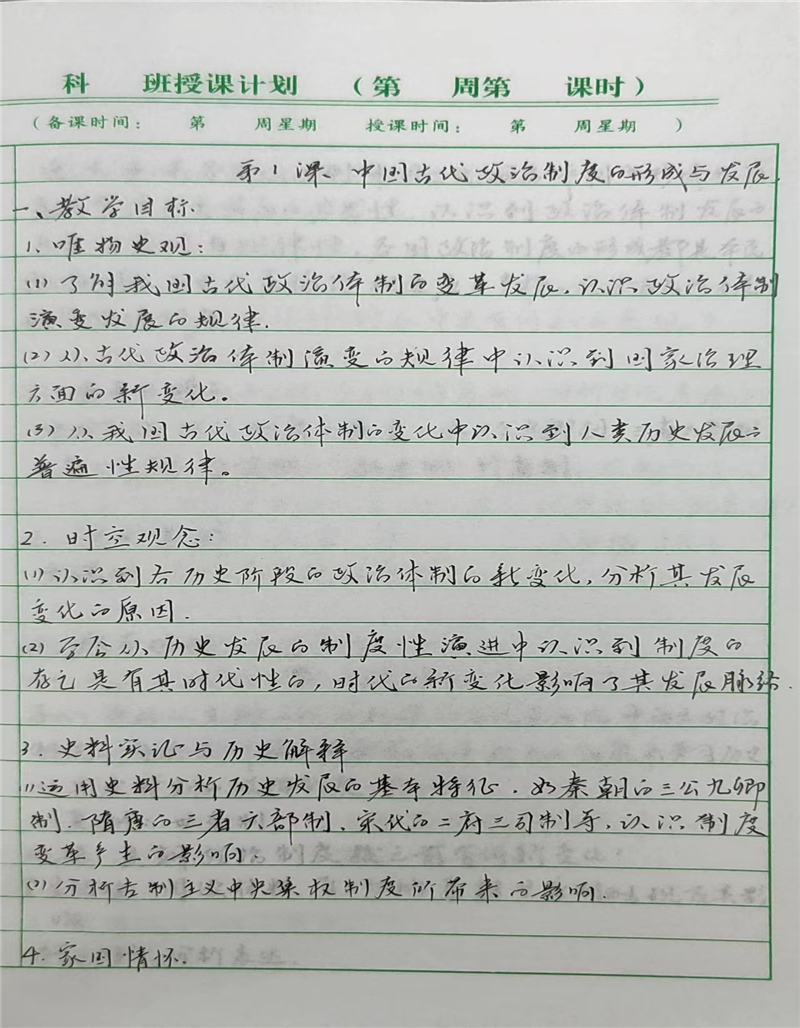 科 班授课计划 （第 周第 课时）
（备课时间： 第 周星期 授课时间： 第 周星期 ）
第1课、中国古代政治制度的形成与发展.
一、教学目标
1、唯物史观：
(1) 了解我国古代政治体制的变革发展，认识政治体制
演变发展的规律.
(2) 从古代政治体制演变的规律中认识到国家治理
方面的新变化。
(3) 从我国古代政治体制的变化中认识到人类历史发展之
普遍性规律。
2. 时空观念：
(1) 认识到各历史阶段的政治体制的新变化，分析其发展
变化的原因.
(2) 学会从历史发展的制度性演进中认识到制度的
存亡是有其时代性的，时代的新变化影响了其发展脉络.
3. 史料实证与历史解释
(1) 运用史料分析历史发展的基本特征，如秦朝的三公九卿
制、隋唐的三省六部制、宋代的二府三司制等，认识制度
变革产生的影响.
(2) 分析专制主义中央集权制度所带来的影响.
4. 家国情怀.